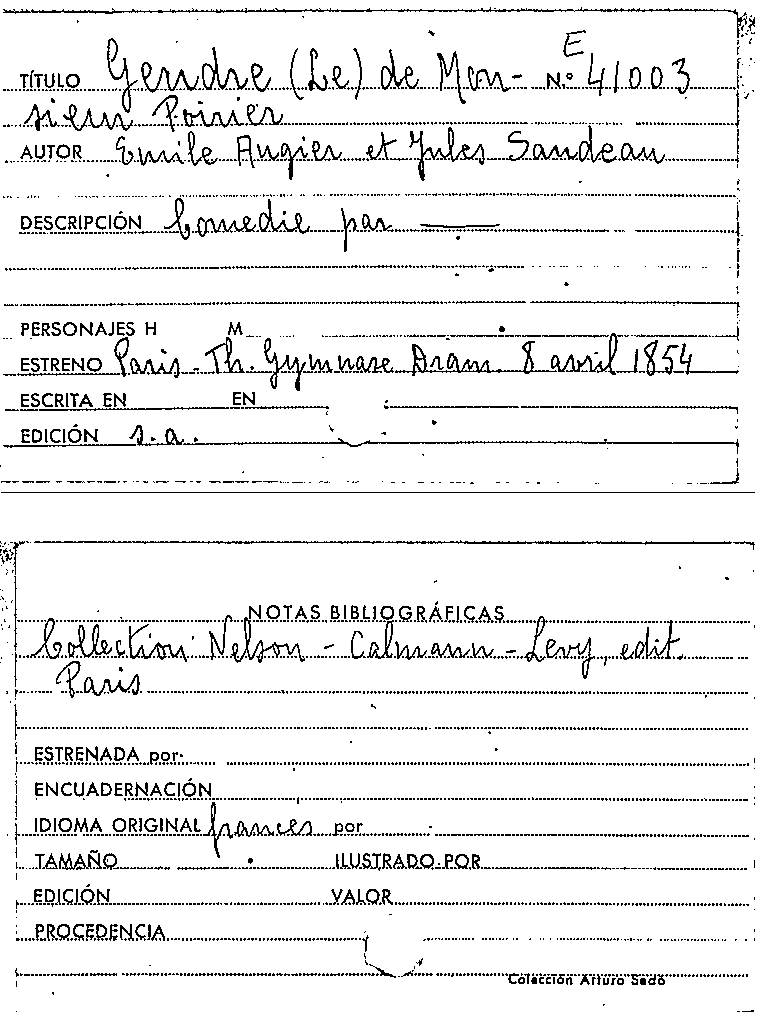 E
TÍTULO Gendre (Le) de Mon- N.º 41003
sieur Poirier
AUTOR Emile Augier et Jules Sandeau
DESCRIPCIÓN Comedie par ———
PERSONAJES H M
ESTRENO Paris - Th. Gymnase Dram. 8 avril 1854
ESCRITA EN EN
EDICIÓN s.a.
NOTAS BIBLIOGRÁFICAS
Collection Nelson - Calmann-Levy, edit.
Paris
ESTRENADA por
ENCUADERNACIÓN
IDIOMA ORIGINAL frances por
TAMAÑO ILUSTRADO POR
EDICIÓN VALOR
PROCEDENCIA
Colección Arturo Sedó